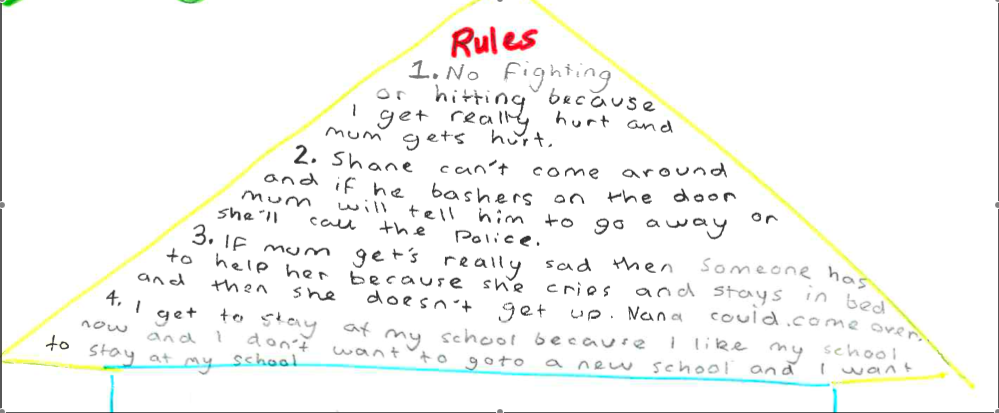 Rules
1. No fighting
or hitting because
I get really hurt and
mum gets hurt.
2. Shane can't come around
and if he bashers on the door
mum will tell him to go away or
she'll call the Police.
3. If mum get's really sad then someone has
to help her because she cries and stays in bed
and then she doesn't get up. Nana could.come over.
4. I get to stay at my school because I like my school
now and I don't want to goto a new school and I want
to stay at my school